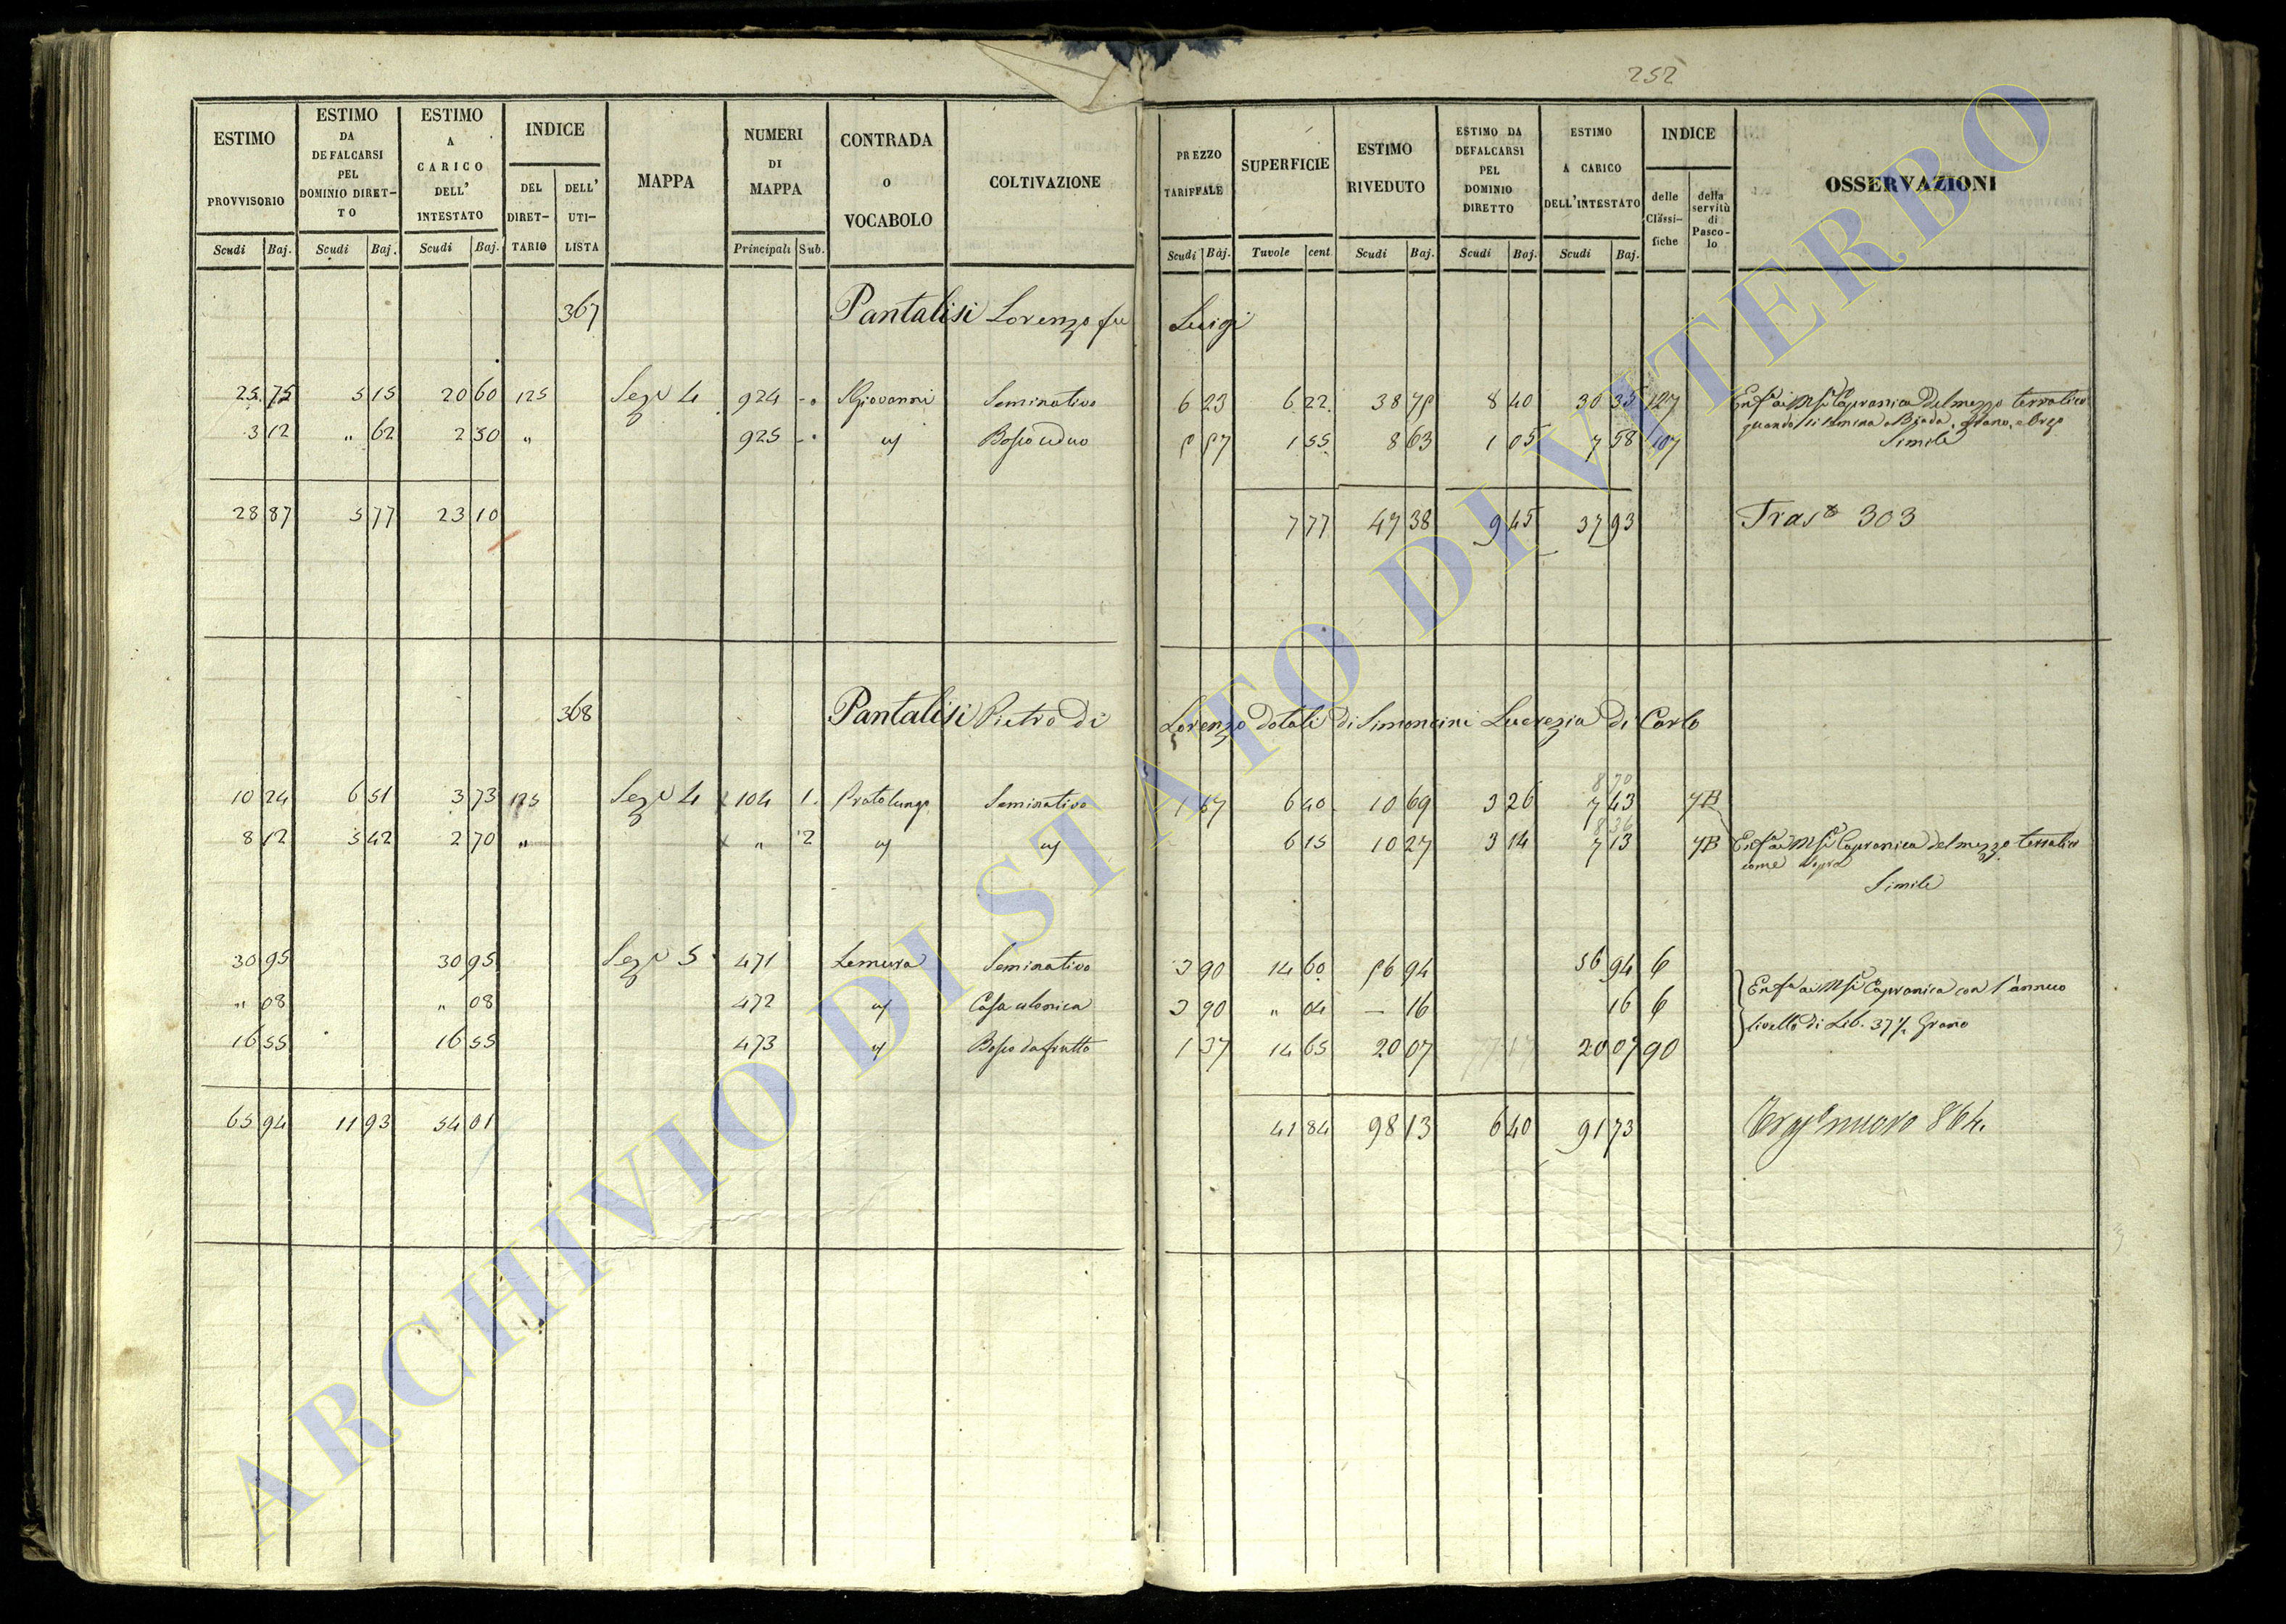 252
ESTIMO PROVVISORIO | ESTIMO DA DEFALCARSI PEL DOMINIO DIRET-TO | ESTIMO A CARICO DELL' INTESTATO | INDICE DEL DIRET-TARIO | DELL' UTI-LISTA | MAPPA | NUMERI DI MAPPA | CONTRADA O VOCABOLO | COLTIVAZIONE | PREZZO TARIFFALE | SUPERFICIE | ESTIMO RIVEDUTO | ESTIMO DA DEFALCARSI PEL DOMINIO DIRETTO | ESTIMO A CARICO DELL'INTESTATO | INDICE delle Classi-fiche | della servitù di Pasco-lo | OSSERVAZIONI
Scudi | Baj. | Scudi | Baj. | Scudi | Baj. | Principali | Sub. | Scudi | Baj. | Tavole | cent | Scudi | Baj. | Scudi | Baj. | Scudi | Baj.
367 Pantalisi Lorenzo fu Luigi
25 75 | 5 15 | 20 60 | 125 | Sez. 4 | 924 | S. Giovanni | Seminativo | 6 23 | 6 22 | 38 75 | 8 40 | 30 35 | 127 | Enf.a ai M.si Capranica del mezzo terratico
quando si semina a Biada, grano, e orzo
3 12 | " 62 | 2 50 | " | 925 | Bosco ceduo | 5 57 | 1 55 | 8 63 | 1 05 | 7 58 | 107 | Simile
28 87 | 5 77 | 23 10 | 7 77 | 47 38 | 9 45 | 37 93 | Tras.to 303
368 Pantalisi Pietro di Lorenzo dotali di Simoncini Lucrezia di Carlo
8 70
10 24 | 6 51 | 3 73 | 125 | Sez. 4 | 104 | 1. | Pratolungo | Seminativo | 1 67 | 6 40 | 10 69 | 3 26 | 7 43 | 7B
8 36
8 12 | 5 42 | 2 70 | " | " | 2 | 6 15 | 10 27 | 3 14 | 7 13 | 7B | Enf.a ai M.si Capranica del mezzo terratico
come sopra
Simile
30 95 | 30 95 | Sez. 5 | 471 | Lemura | Seminativo | 3 90 | 14 60 | 56 94 | 56 94 | 6
Enf.a ai M.si Capranica con l'annuo
" 08 | " 08 | 472 | Casa colonica | 3 90 | " 04 | — 16 | 16 | 6
livello di Lib. 377. Grano
16 55 | 16 55 | 473 | Bosco da frutto | 1 37 | 14 65 | 20 07 | 20 07 | 90
65 94 | 11 93 | 54 01 | 41 84 | 98 13 | 6 40 | 91 73 | nuovo 864.
ARCHIVIO DI STATO DI VITERBO